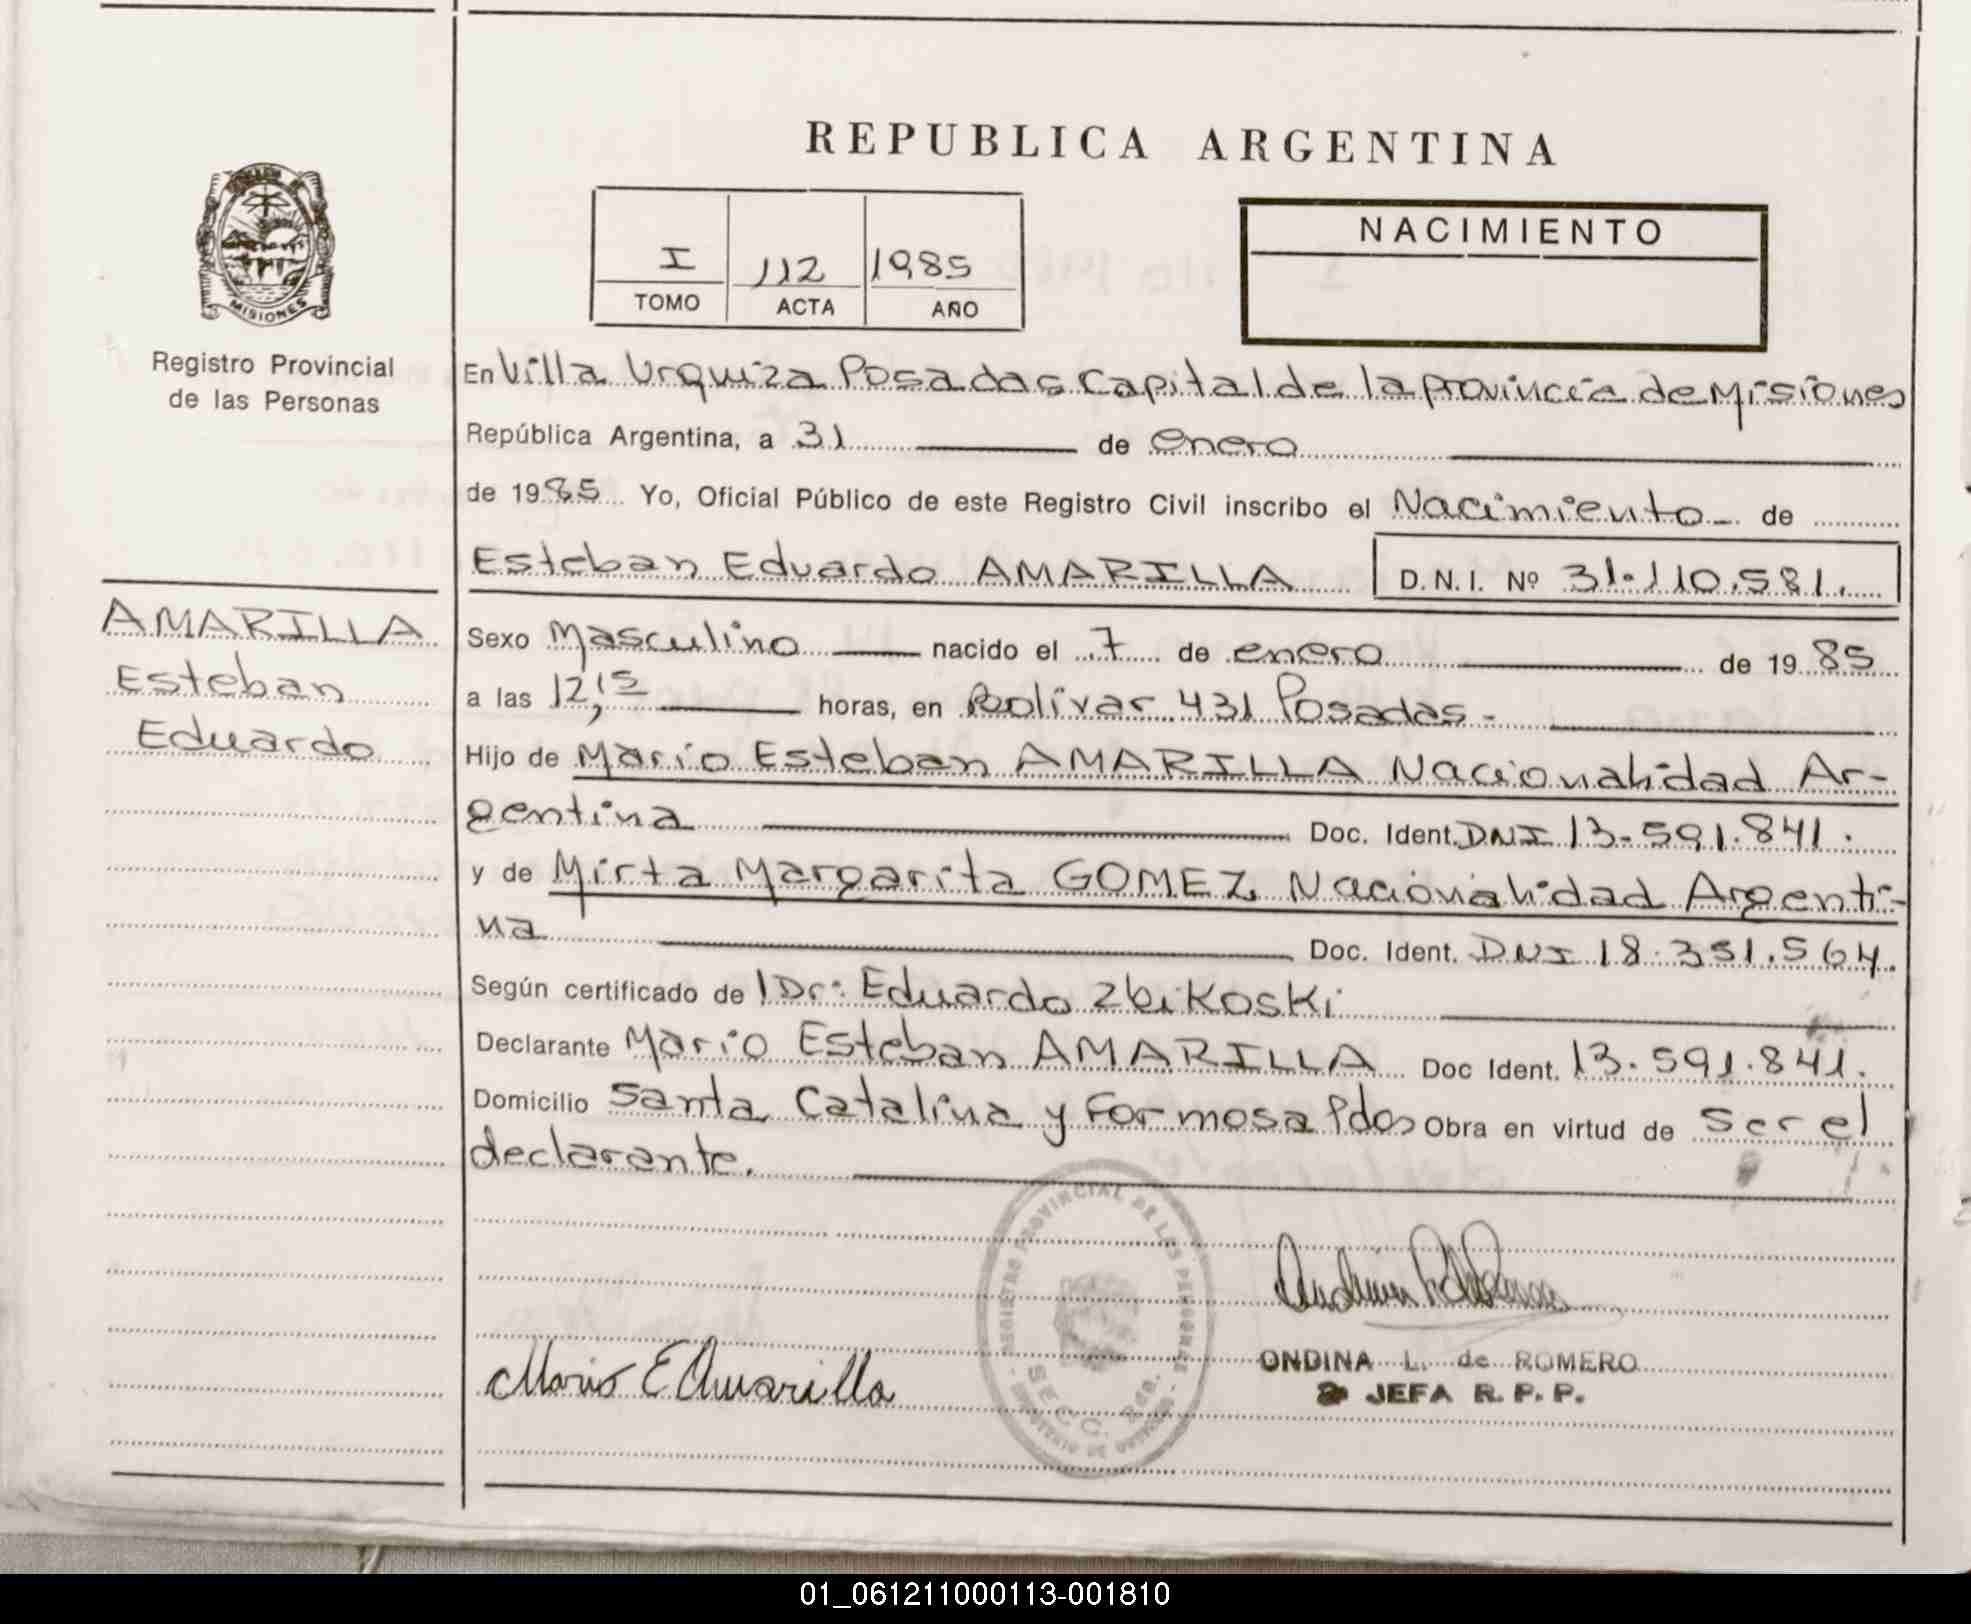 REPUBLICA ARGENTINA
I 112 1985
TOMO ACTA AÑO
NACIMIENTO
MISIONES
Registro Provincial
de las Personas
En Villa Urquiza Posadas Capital de la provincia de Misiones
República Argentina, a 31 de enero
de 1985 Yo, Oficial Público de este Registro Civil inscribo el Nacimiento - de
Esteban Eduardo AMARILLA D.N.I. Nº 31.110.581.
AMARILLA
Esteban
Eduardo
Sexo Masculino nacido el 7 de enero de 1985
a las 12,15 horas, en Bolivar 431 Posadas -
Hijo de Mario Esteban AMARILLA Nacionalidad Ar-
gentina Doc. Ident. DNI 13.591.841.
y de Mirta Margarita GOMEZ Nacionalidad Argenti-
na Doc. Ident. DNI 18.351.564.
Según certificado de l Dr: Eduardo Zbikoski
Declarante Mario Esteban AMARILLA Doc Ident. 13.591.841.
Domicilio Santa Catalina y Formosa Pdas Obra en virtud de ser el
declarante.
REGISTRO PROVINCIAL DE LAS PERSONAS
SECC. 2da.
MINISTERIO DE GOBIERNO
Mario E Amarilla
ONDINA L. de ROMERO
JEFA R. P. P.
01_061211000113-001810